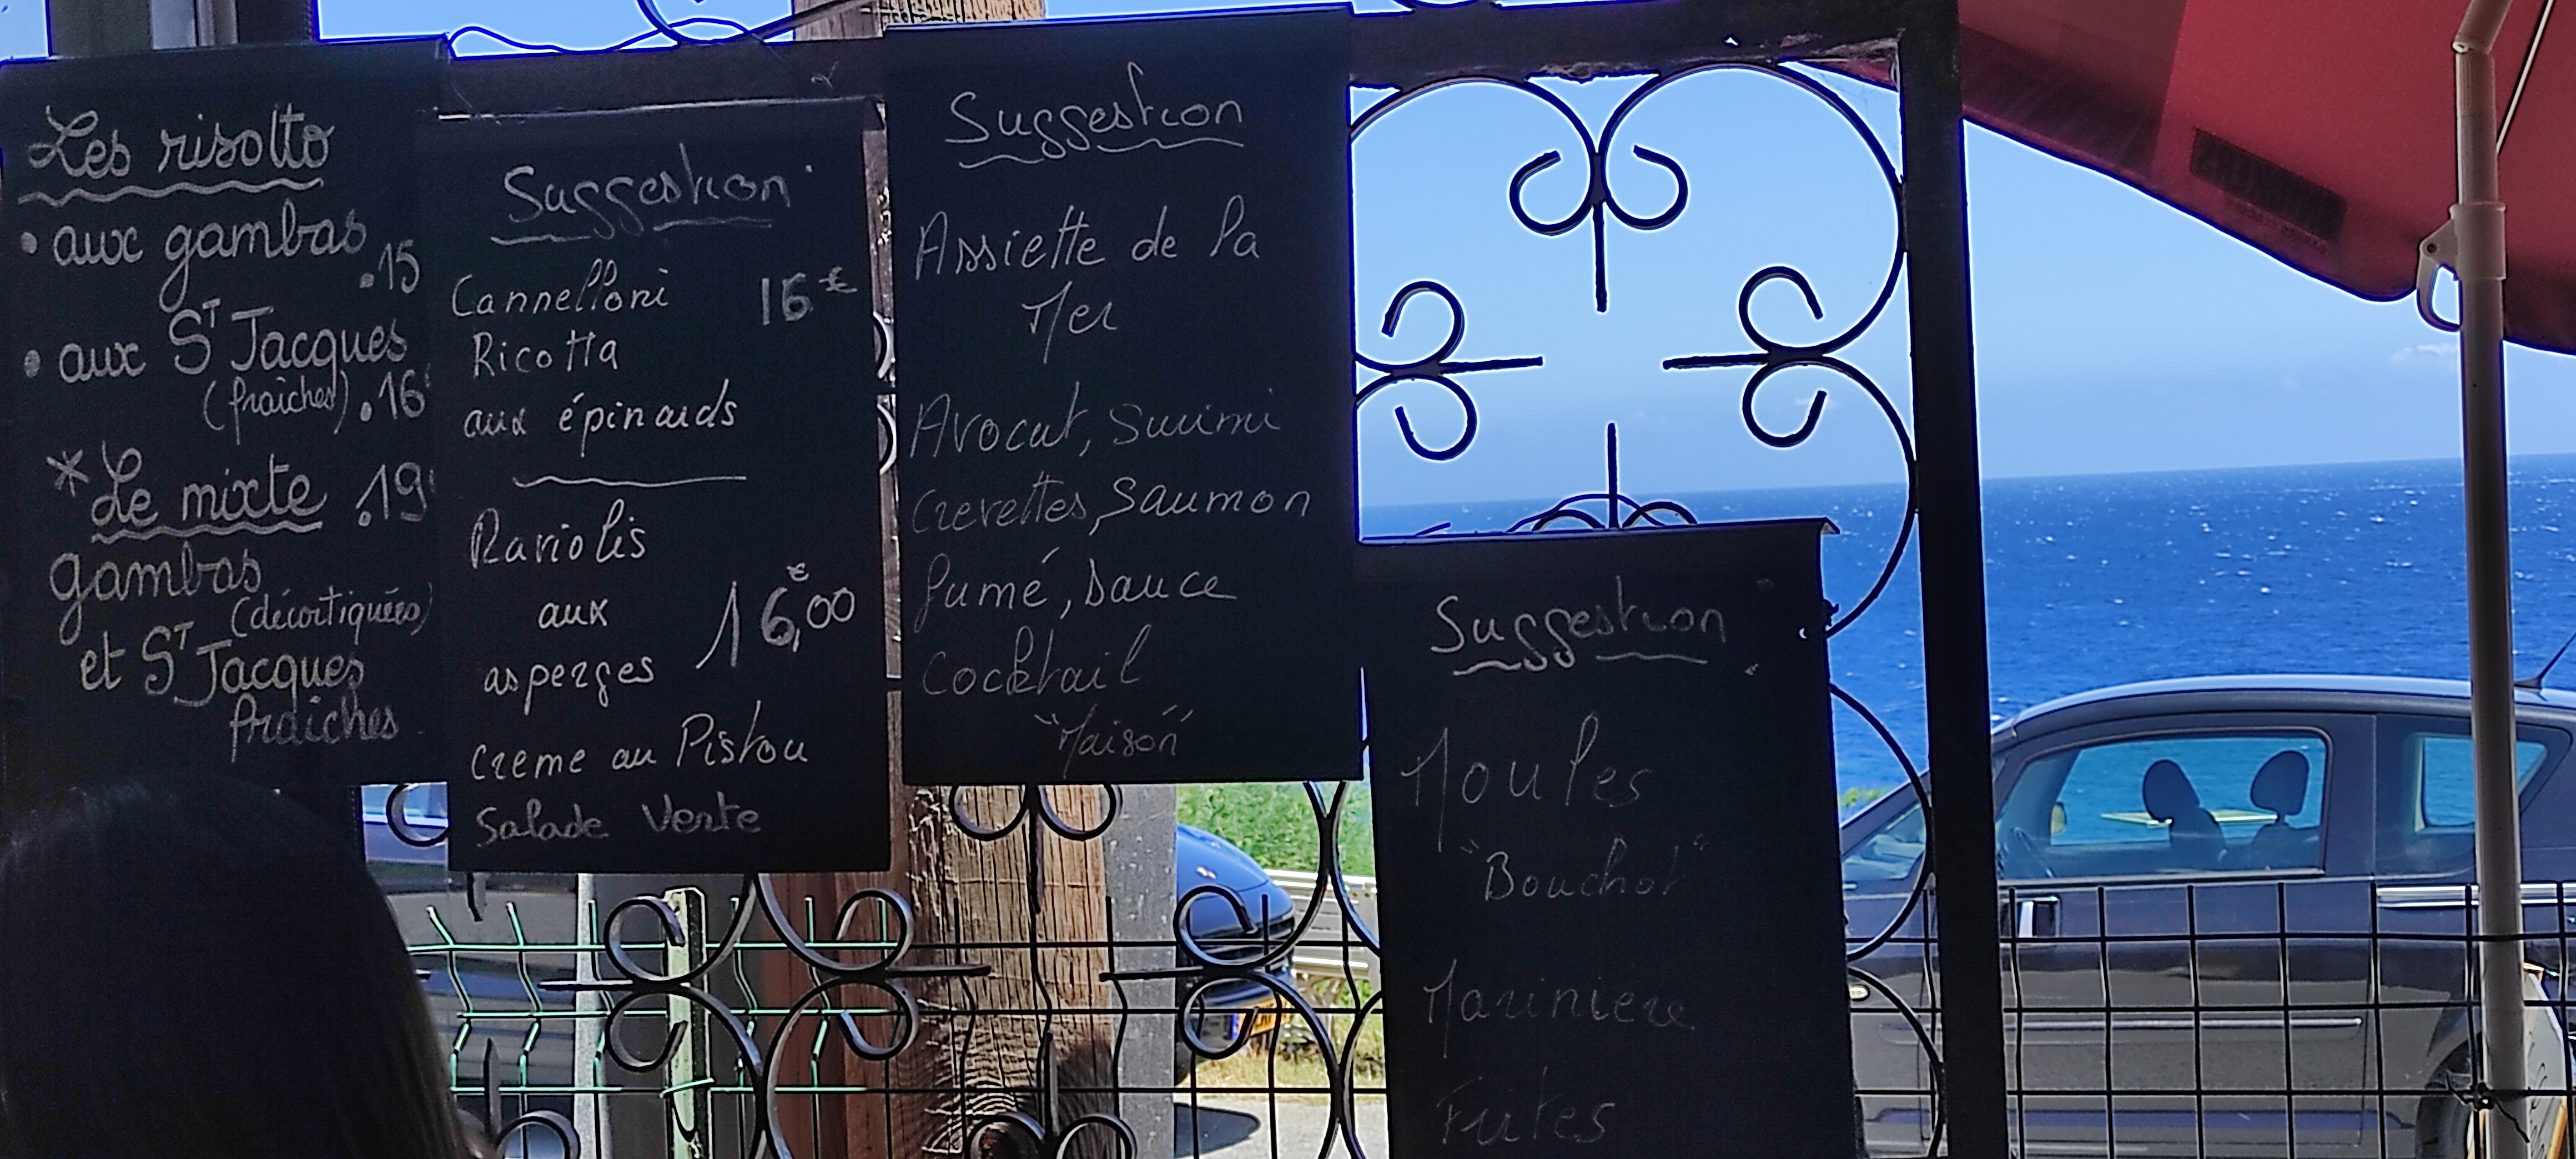 Les risotto
• aux gambas
.15
• aux ST Jacques
(fraîches) .16
* Le mixte .19
gambas
(décortiquées)
et ST Jacques
fraîches
Suggestion
Cannelloni 16€
Ricotta
aux épinards
Raviolis
aux
16,00€
asperges
creme au Pistou
Salade Verte
Suggestion
Assiette de la
Mer
Avocat, Surimi
Crevettes, Saumon
fumé, sauce
Cocktail
"Maison"
Suggestion
Moules
"Bouchot"
Mariniere
Frites